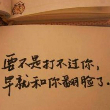 要不是打不过你，
早就和你翻脸了。